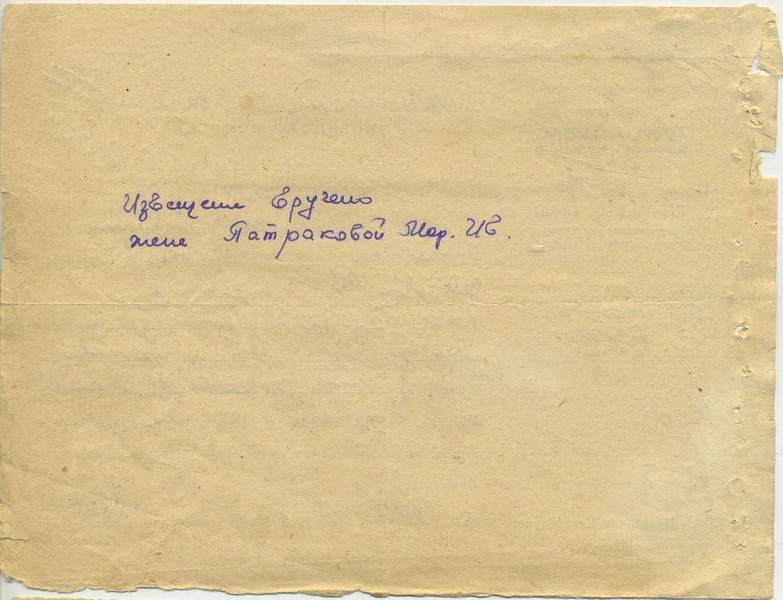 Извещение вручено
жене Патраковой Мар. Ив.